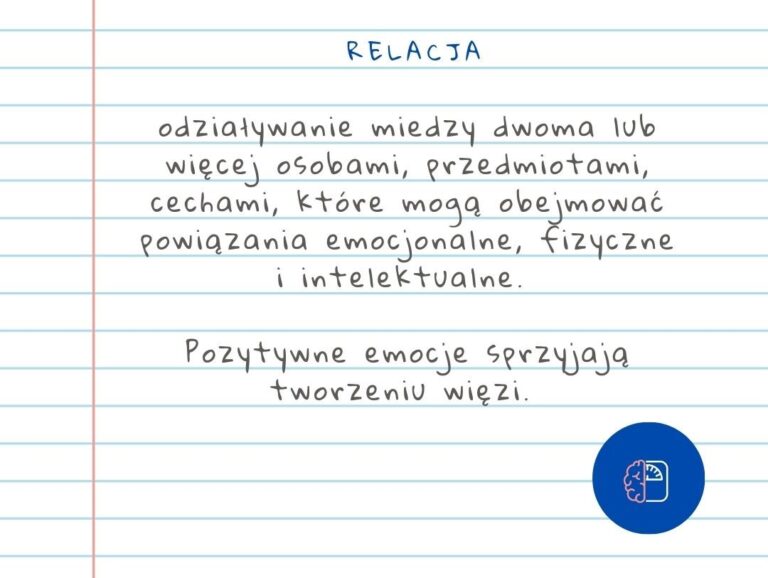 RELACJA
odziaływanie miedzy dwoma lub
więcej osobami, przedmiotami,
cechami, które mogą obejmować
powiązania emocjonalne, fizyczne
i intelektualne.
Pozytywne emocje sprzyjają
tworzeniu więzi.